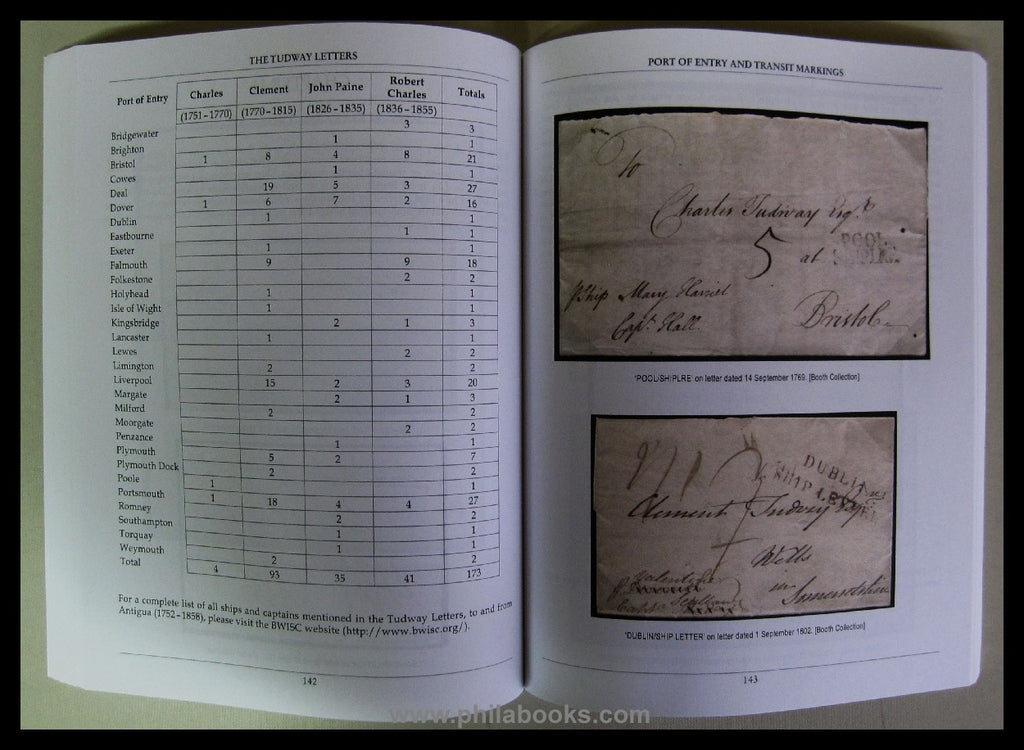 THE TUDWAY LETTERS
Port of Entry Charles Clement John Paine Robert Charles Totals
(1751–1770) (1770–1815) (1826–1835) (1836–1855)
Bridgewater 3 3
Brighton 1 1
Bristol 1 8 4 8 21
Cowes 1 1
Deal 19 5 3 27
Dover 1 6 7 2 16
Dublin 1 1
Eastbourne 1 1
Exeter 1 1
Falmouth 9 9 18
Folkestone 2 2
Holyhead 1 1
Isle of Wight 1 1
Kingsbridge 2 1 3
Lancaster 1 1
Lewes 2 2
Limington 2 2
Liverpool 15 2 3 20
Margate 2 1 3
Milford 2 2
Moorgate 2 2
Penzance 1 1
Plymouth 5 2 7
Plymouth Dock 2 2
Poole 1 1
Portsmouth 1 18 4 4 27
Romney 2 2
Southampton 1 1
Torquay 1 1
Weymouth 2 2
Total 4 93 35 41 173
For a complete list of all ships and captains mentioned in the Tudway Letters, to and from
Antigua (1752–1858), please visit the BWISC website (http://www.bwisc.org/).
142
PORT OF ENTRY AND TRANSIT MARKINGS
To
Charles Tudway Esqr
5 at POOL
SHIPLRE
p Ship Mary Harriet
Capt. Hall. Bristol
'POOL/SHIPLRE' on letter dated 14 September 1769. [Booth Collection]
DUBLIN
SHIP LE
Clement Tudway Esqr
Wells
in
Somersetshire
'DUBLIN/SHIP LETTER' on letter dated 1 September 1802. [Booth Collection]
143
www.philabooks.com